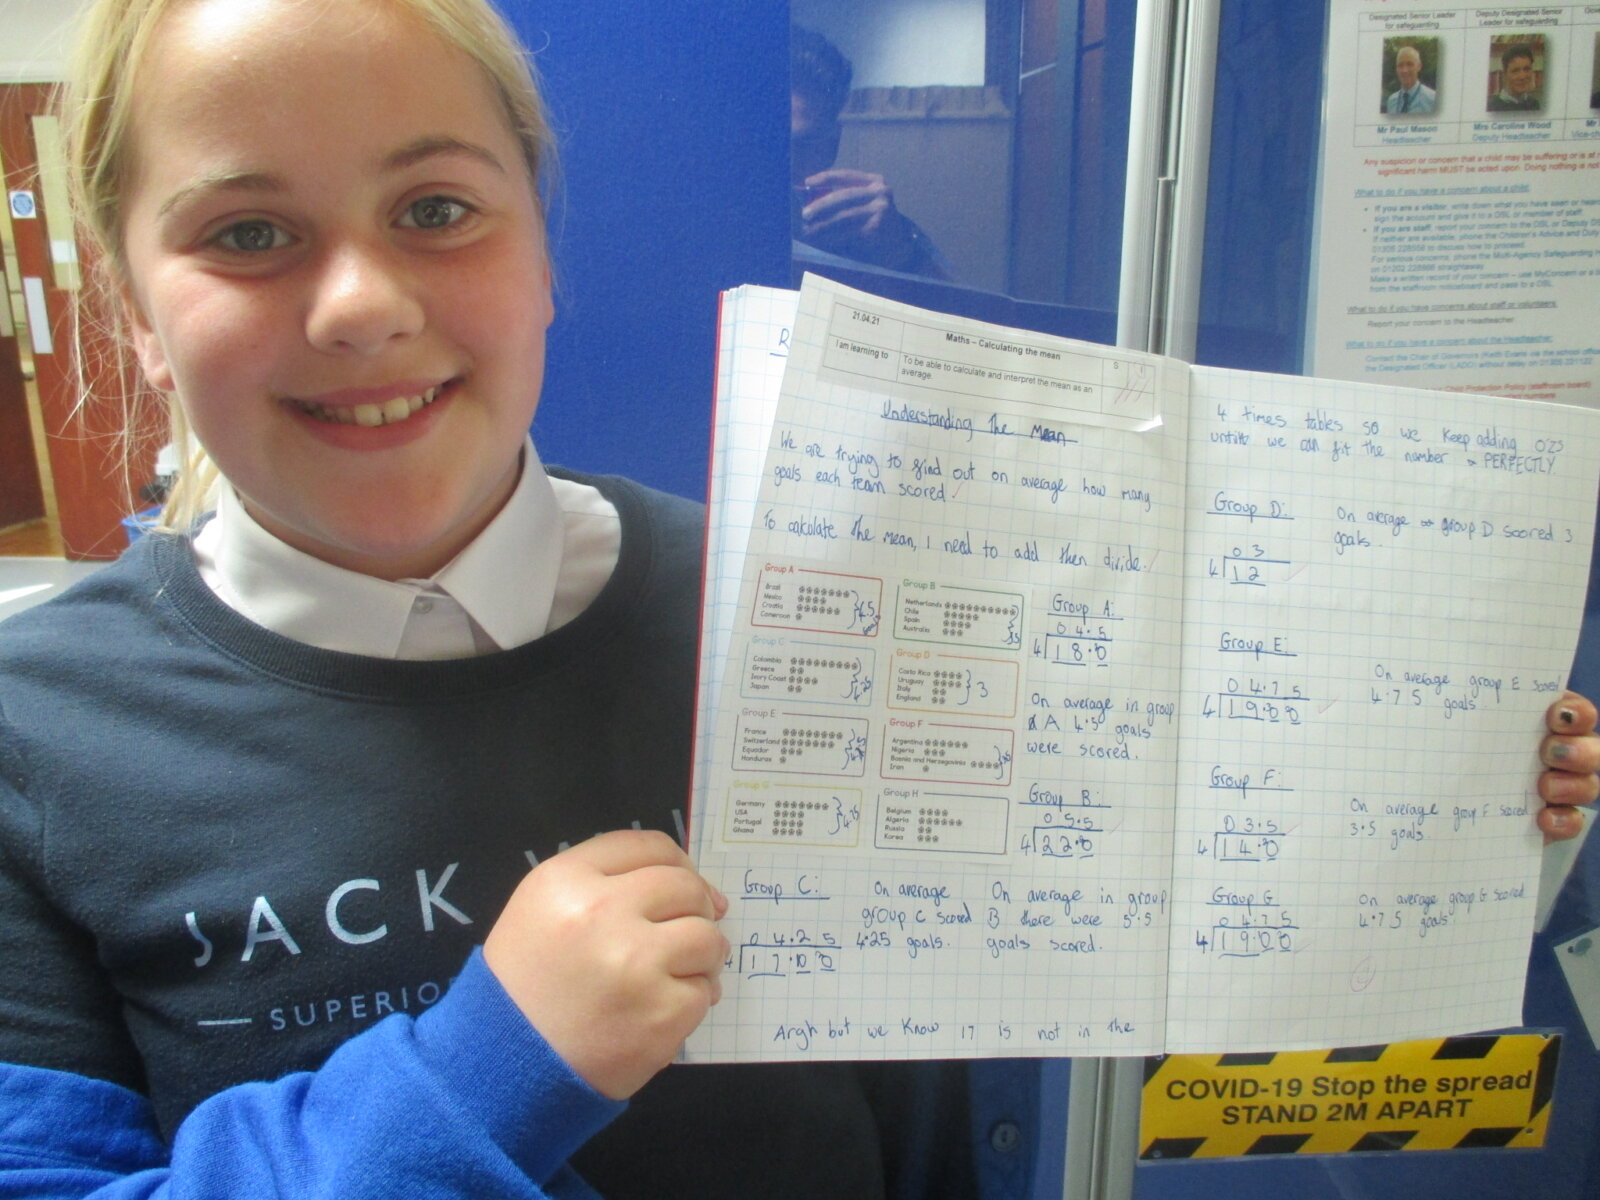 21.04.21
Maths – Calculating the mean
S
I am learning to
To be able to calculate and interpret the mean as an
average.
Understanding The Mean
We are trying to find out on average how many
goals each team scored.
To calculate the mean, I need to add then divide.
Group A
Brazil
Mexico
Croatia
Cameroon
4.5
Group B
Netherlands
Chile
Spain
Australia
Group C
Colombia
Greece
Ivory Coast
Japan
4.25
Group D
Costa Rica
Uruguay
Italy
England
3
Group E
France
Switzerland
Equador
Honduras
Group F
Argentina
Nigeria
Bosnia and Herzegovinia
Iran
Germany
USA
Portugal
Ghana
4.75
Group H
Belgium
Algeria
Russia
Korea
Group A:
0 4.5
4 18.0
On average in group
A 4.5 goals
were scored.
Group B:
0 5.5
4 22.0
On average in group
B there were 5.5
goals scored.
Group C:
0 4.2 5
4 17.00
On average
group C scored
4.25 goals.
Argh but we know 17 is not in the
4 times tables so we keep adding 0's
until we can fit the number PERFECTLY.
Group D:
0 3
4 12
On average group D scored 3
goals.
Group E:
0 4.7 5
4 19.00
On average group E scored
4.75 goals.
Group F:
0 3.5
4 14.0
On average group F scored
3.5 goals.
Group G
0 4.7 5
4 19.00
On average group G scored
4.75 goals.
JACK
SUPERIO
Designated Senior Leader
for safeguarding
Deputy Designated Senior
Leader for safeguarding
Mr Paul Mason
Headteacher
Mrs Caroline Wood
Deputy Headteacher
Any suspicion or concern that a child may be suffering or is at
significant harm MUST be acted upon. Doing nothing is no
What to do if you have a concern about a child:
If you are a visitor, write down what you have seen or hear
sign the account and give it to a DSL or member of staff.
If you are staff, report your concern to the DSL or Deputy DS
If neither are available, phone the Children's Advice and Duty
01305 228558 to discuss how to proceed.
For serious concerns, phone the Multi-Agency Safeguarding H
on 01202 228866 straightaway.
Make a written record of your concern – use MyConcern or a
from the staffroom noticeboard and pass to a DSL.
What to do if you have concerns about staff or volunteers:
Report your concern to the Headteacher
What to do if you have concerns about the Headteacher:
Contact the Chair of Governors (Keith Evans via the school offic
the Designated Officer (LADO) without delay on 01305 221122
Child Protection Policy (staffroom board)
COVID-19 Stop the spread
STAND 2M APART